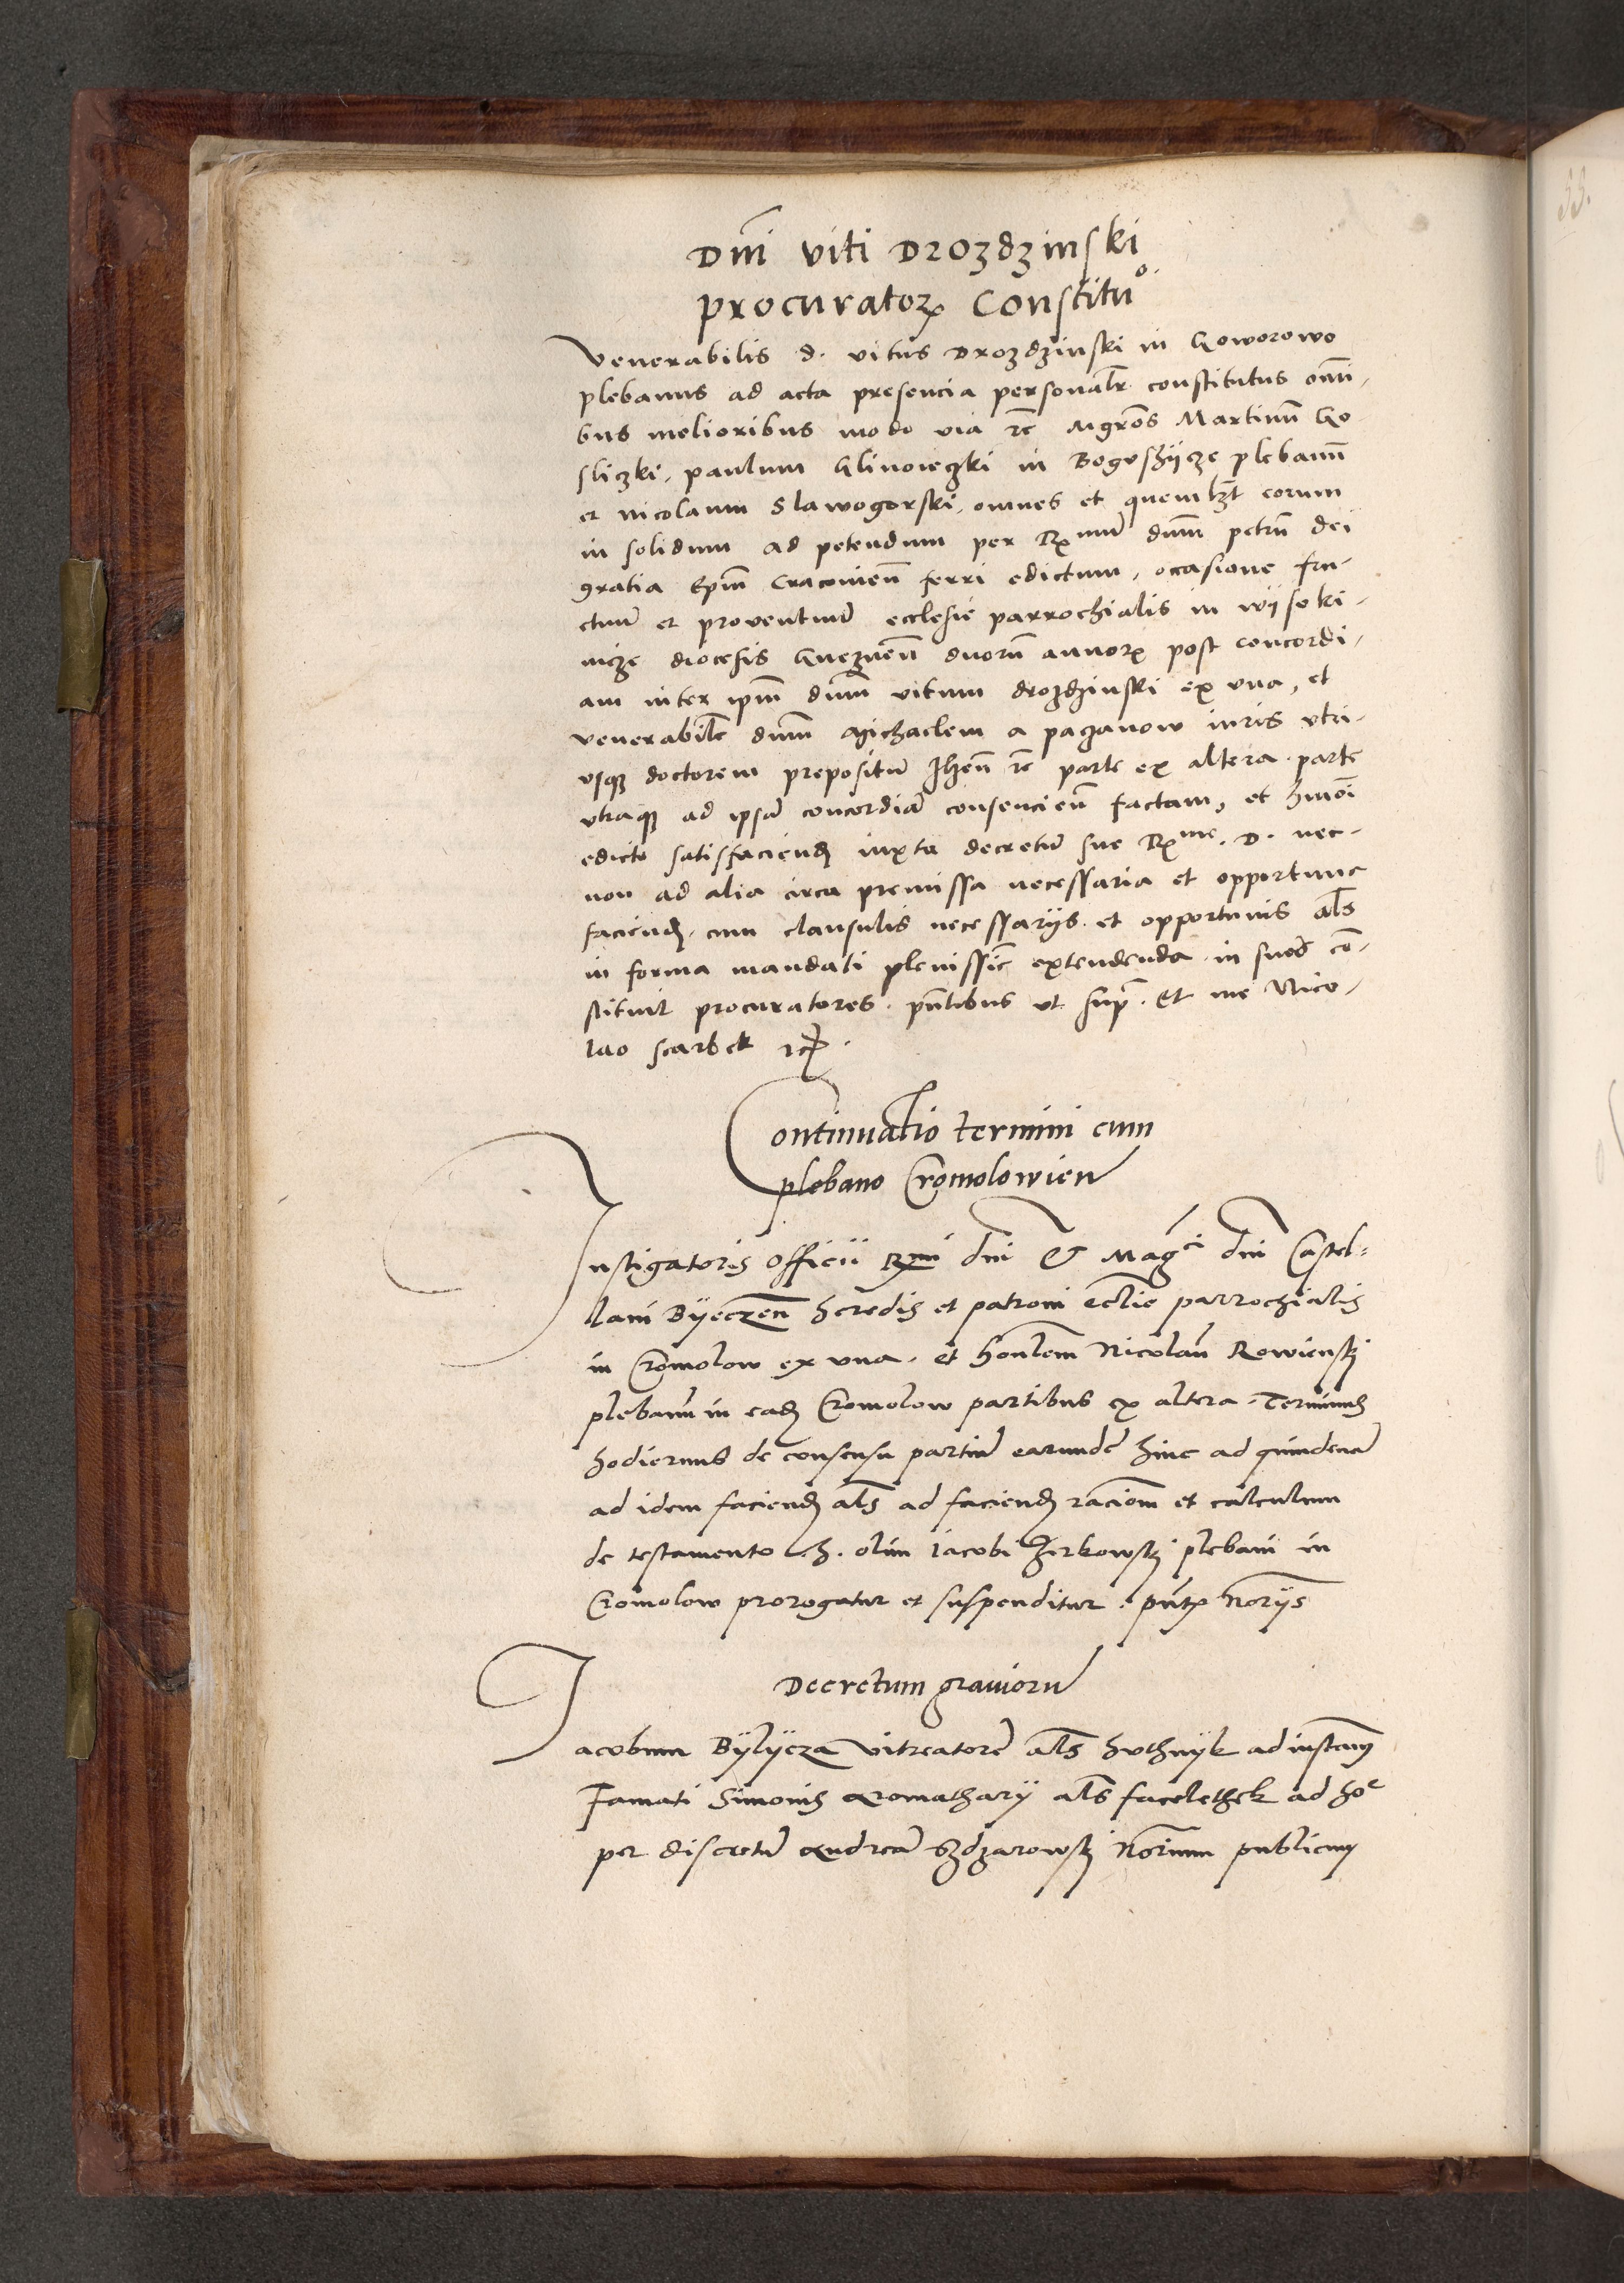 Dni viti Drozdzinski
procurator Constituo
Venerabilis d. vitus Drozdzinski in Goworowo
plebanus ad acta presencia personalr constitutus omni,
bus melioribus modo via rc Mgros Martinu Go
sliczki, paulum Glinoieczki in Bogoszijcze plebanu
et nicolaum Slawogorski, omnes et quemlzt eorum
in solidum ad petendum per Rmu dnm petru dei
gratia Epm Cracouien ferri edictum, occasione fru-
ctuu et prouentuu ecclesie parrochialis in wijseki-
nicze diocesis Gneznen duoru annor post concordi-
am inter ipm dnm vitum drozdzinski ex vna, et
venerabile dnm Michaelem a paczanow iuris vtri-
vsq doctorem prepositu zhen rc parte ex altera, parte
vtraq ad ipsa concordia conscencien factam, et hmoi
edicto satisfaciend iuxta decretu sue Rme. D. nec-
non ad alia circa premissa necessaria et opportune
faciend, cum clausulis necessarijs et opportunis als
in forma mandati plenissie extendenda in suos co-
stituit procuratores. pntibus ut supra. Et me Nico-
lao scarbek rc.
Continuatio termini cum
plebano Cromolowien
Instigatoris officii Rmi dni & Magci dni Castel=
lani Byeczen heredis et patroni ecclie parrochialis
in Cromolow ex vna, et honlem Nicolau Rowienski
plebanu in ead Cromolow partibus ex altera. Terminus
hodiernus de consensu partiu earunde hinc ad quindena
ad idem faciend als ad faciend raciom et calculum
de testamento h. olim Iacobi Zirkowski plebani in
Cromolow prorogatur et suspenditur. pntp Norijs
Decretum grauioru
Iacobum Bijlijcza vitreatore als huthnijk ad instam
Famati Simonis Aromatharij als facelethek ad ho
per discretu Andrea Szdzarowski Norium publicum